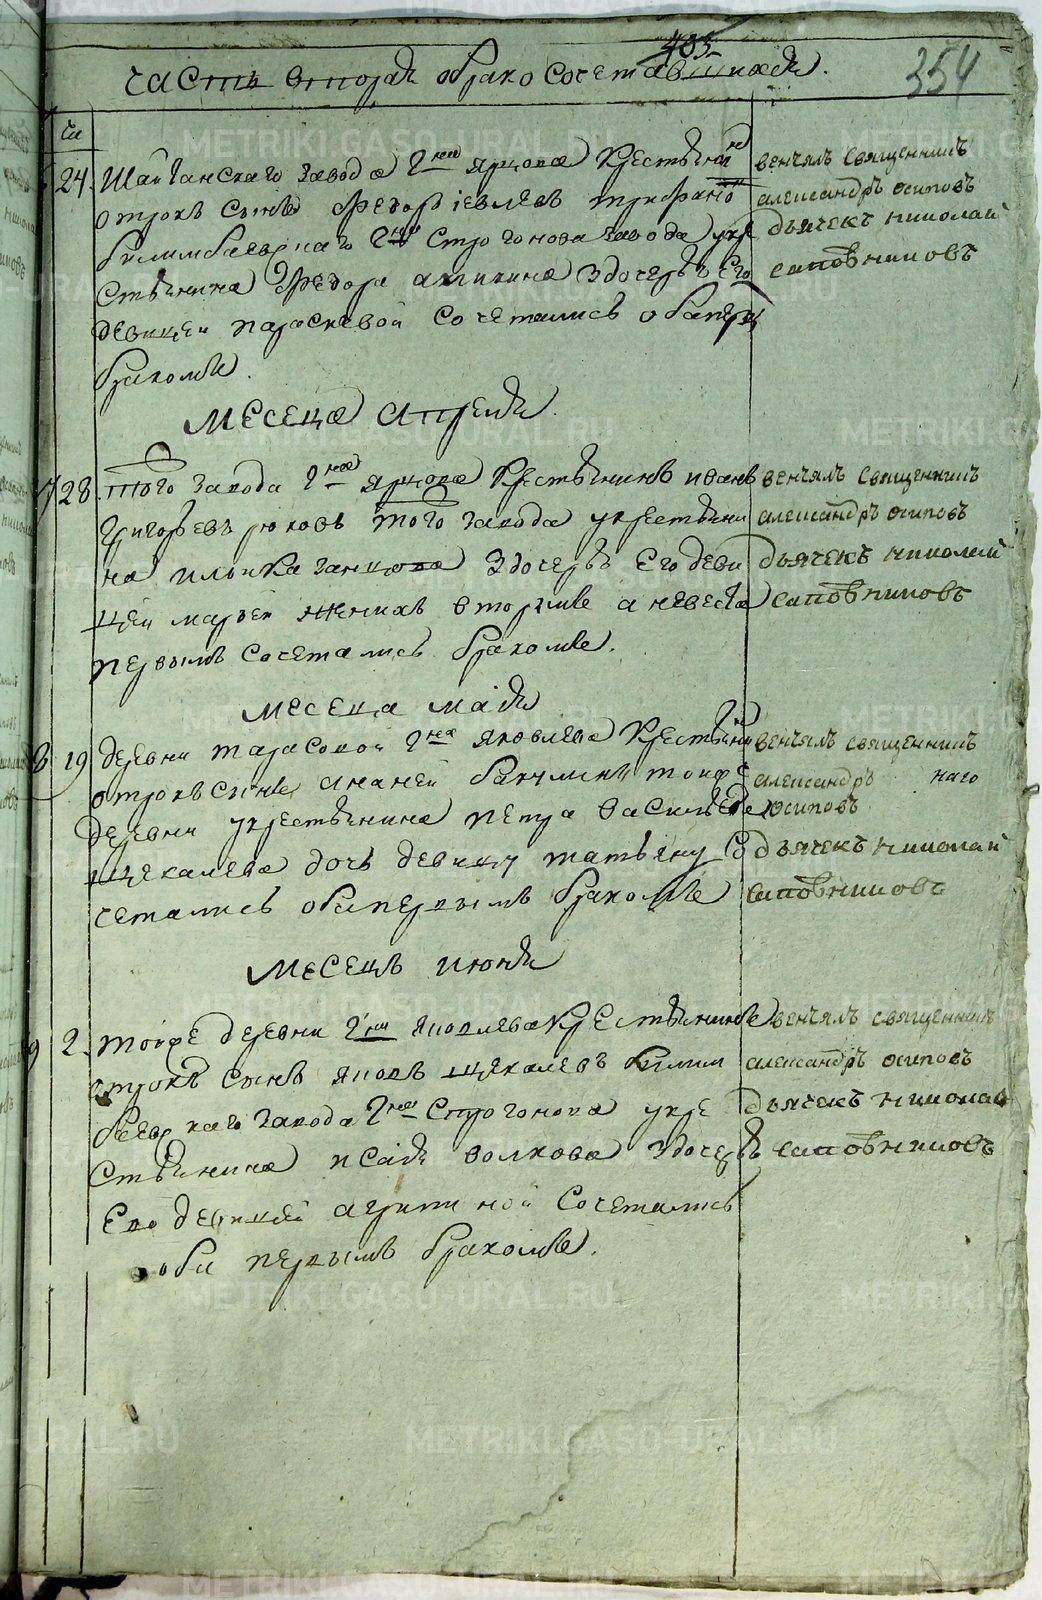 403
354
часть вторая о бракосочетавшихся.
чи
24. Шайтанского завода гна Ярцова крестьянин
отрокъ сынъ Федоръ Иевлевъ
билимбаевскаго гна Строгонова завода укре
стьянина Федора здочерью Его
девицей параскевой сочетались оба первы
бракомъ.
венчялъ священникъ
александръ осиповъ
дьячекъ николай
сапожниковъ
месеца апреля.
7 28. Того завода гна Ярцова крестьянинъ иванъ
григорьевъ того завода укрестьяни
на здочерью Его деви
цей марьей женихъ вторымъ а невеста
первымъ сочетались бракомъ.
венчялъ священникъ
александръ осиповъ
дьячекъ николай
сапожниковъ
месеца маия
8 19 деревни тарасовой гна яковлева крестьянин
отрокъ сынъ ананей тойже
деревни укрестьянина петра василье
щекалева дочь девицу татьяну со
четались оба первымъ бракомъ
венчялъ священникъ
александръ
осиповъ
дьячекъ николай
сапожниковъ
месецъ июня
9 2. тойже деревни гна яковлева крестьянинъ
отрокъ сынъ яковъ щекалевъ билим
баевскаго завода гна Строгонова укре
стьянина исаия волкова здочерью
Его девицей сочетались
оба первымъ бракомъ.
венчялъ священникъ
александръ осиповъ
дьячекъ николай
сапожниковъ
METRIKI.GASO-URAL.RU